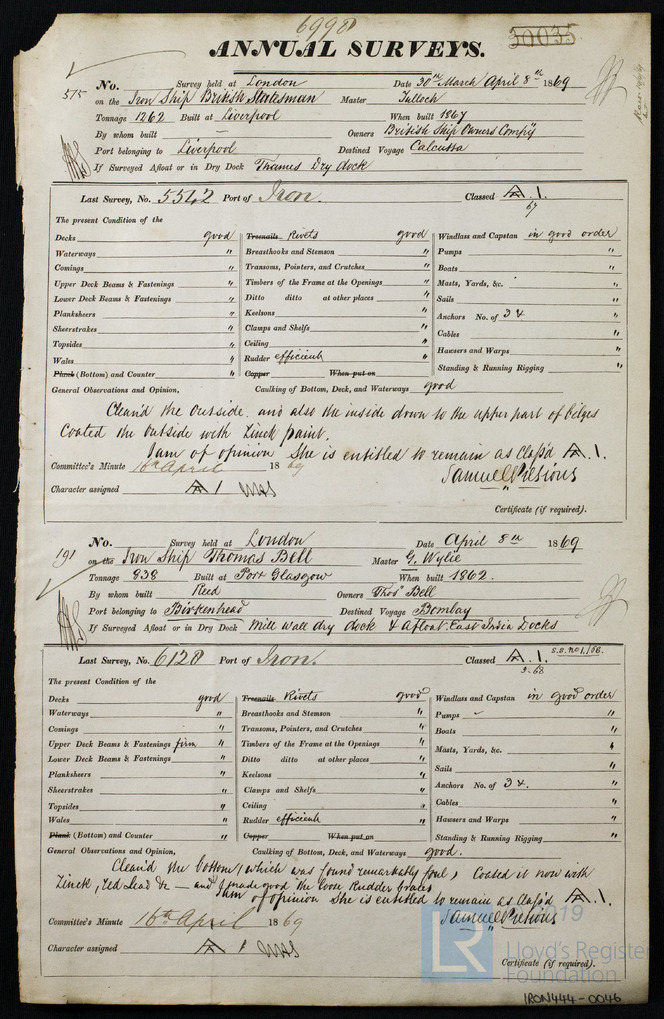 6998
30035
ANNUAL SURVEYS.
515 No. Survey held at London Date 30th March April 8th 1869
on the Iron Ship British Statesman Master Tulloch
Tonnage 1262 Built at Liverpool When built 1867
By whom built — Owners British Ship Owners Compy
Port belonging to Liverpool Destined Voyage Calcutta
If Surveyed Afloat or in Dry Dock Thames Dry dock
Last Survey, No. 5542 Port of Iron. Classed A.1.
67
The present Condition of the
Decks good Treenails Rivets good Windlass and Capstan in good order
Waterways " Breasthooks and Stemson " Pumps "
Comings " Transoms, Pointers, and Crutches " Boats "
Upper Deck Beams & Fastenings " Timbers of the Frame at the Openings " Masts, Yards, &c. "
Lower Deck Beams & Fastenings " Ditto ditto at other places " Sails "
Planksheers " Keelsons " Anchors No. of 3 & "
Sheerstrakes " Clamps and Shelfs " Cables "
Topsides " Ceiling " Hawsers and Warps "
Wales " Rudder efficient " Standing & Running Rigging "
Plank (Bottom) and Counter " Copper When put on
General Observations and Opinion, Caulking of Bottom, Deck, and Waterways good
Clean'd the Outside and also the inside down to the upper part of bilges
Coated the Outside with Zinck paint.
I am of opinion She is entitled to remain as Class'd A.1.
Committee's Minute 16th April 1869
Character assigned A 1
Certificate (if required).
191 No. Survey held at London Date April 8th 1869
on the Iron Ship Thomas Bell Master G. Wylie
Tonnage 838 Built at Port Glasgow When built 1862.
By whom built Reed Owners Thos Bell
Port belonging to Birkenhead Destined Voyage Bombay
If Surveyed Afloat or in Dry Dock Mill wall dry dock & afloat East India Docks
Last Survey, No. 6128 Port of Iron. Classed A.1. s.s. no 1./66.
3-68
The present Condition of the
Decks good Treenails Rivets good Windlass and Capstan in good order
Waterways " Breasthooks and Stemson " Pumps "
Comings " Transoms, Pointers, and Crutches " Boats "
Upper Deck Beams & Fastenings firm " Timbers of the Frame at the Openings " Masts, Yards, &c. "
Lower Deck Beams & Fastenings " Ditto ditto at other places " Sails "
Planksheers " Keelsons " Anchors No. of 3 &. "
Sheerstrakes " Clamps and Shelfs " Cables "
Topsides " Ceiling " Hawsers and Warps "
Wales " Rudder efficient " Standing & Running Rigging "
Plank (Bottom) and Counter " Copper When put on
General Observations and Opinion, Caulking of Bottom, Deck, and Waterways good.
Clean'd the bottom, (which was found remarkably foul, Coated it now with
Zinck, red Lead &c — and made good the loose Rudder braces
I am of opinion She is entitled to remain as Class'd A.1.
Committee's Minute 16th April 1869
Character assigned A 1
Certificate (if required).
LR
2019
Lloyd's Register
Foundation
IRON444-0046